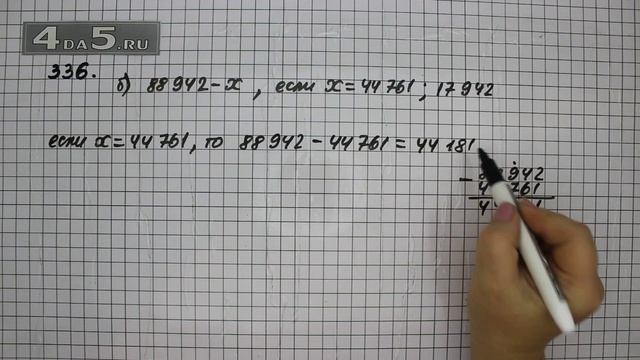 4DA5.RU
336.
б) 88 942 - x , если x = 44 761 ; 17 942
если x = 44 761, то 88 942 - 44 761 = 44 181
942
761